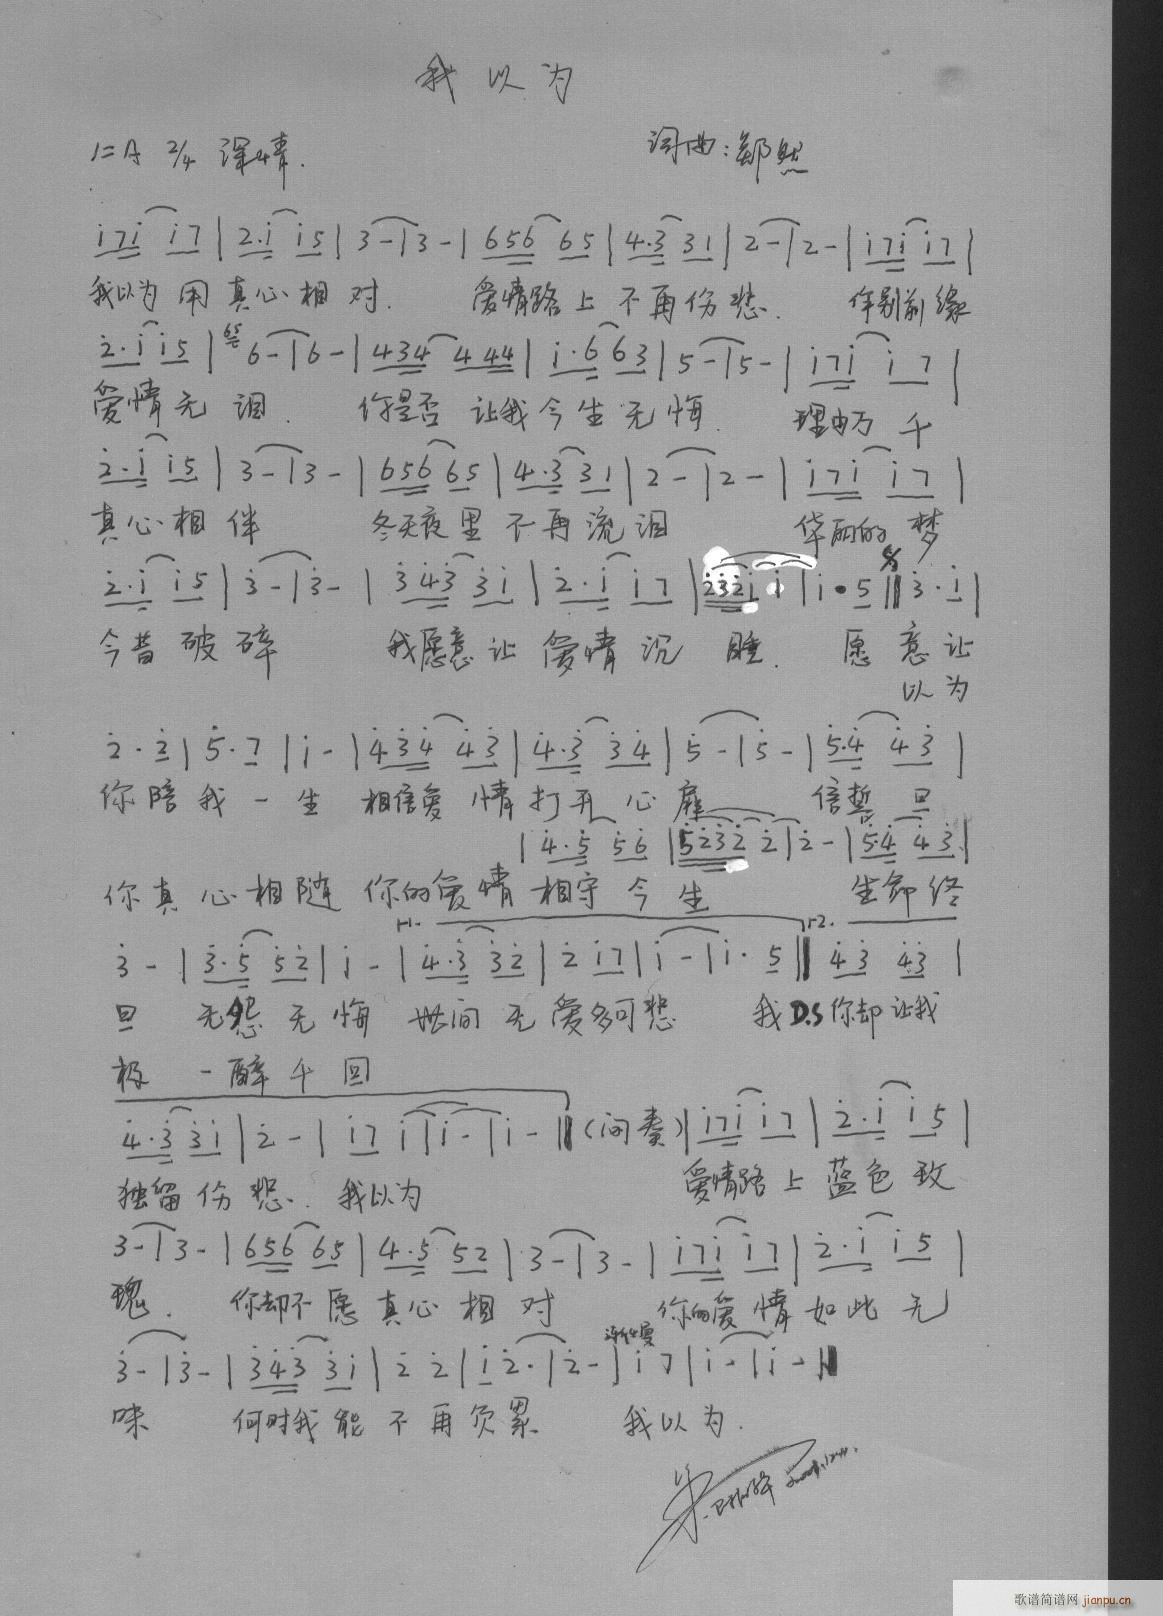 我以为
1=A 2/4 深情.
词曲:郑然
i7i i7 | 2·i i5 | 3 - | 3 - | 656 65 | 4·3 31 | 2 - | 2 - | i7i i7 |
我以为 用真心相对. 爱情路上不再伤悲. 作别前缘
2·i i5 | 65 6 - | 6 - | 434 444 | i·6 63 | 5 - | 5 - | i7i i7 |
爱情无泪. 你是否 让我今生无悔. 理由万千
2·i i5 | 3 - | 3 - | 656 65 | 4·3 31 | 2 - | 2 - | i7i i7 |
真心相伴 冬天夜里不再流泪 华丽的梦
2·i i5 | 3 - | 3 - | 343 3i | 2·i i7 | 232i i | i·5 || 3·i |
今昔破碎 我愿意让爱情沉睡. 愿意让
以为
2·2 | 5·7 | i - | 434 43 | 4·3 34 | 5 - | 5 - | 5·4 43 |
你陪我一生 相信爱情打开心扉 信誓旦
| 4·5 56 | 5232 2 | 2 - | 5·4 43 |
你真心相随 你的爱情相守今生 生命终
3 - | 3·5 52 | i - | 4·3 32 | 2 i7 | i - | i·5 || 43 43 |
1. 2.
旦 无怨无悔 世间无爱多可悲 我D.S你却让我
极 一醉千回
4·3 3i | 2 - | i7 i | i - | i - || (间奏) | i7i i7 | 2·i i5 |
独留伤悲. 我以为 爱情路上蓝色玫
3 - | 3 - | 656 65 | 4·5 52 | 3 - | 3 - | i7i i7 | 2·i i5 |
瑰. 你却不愿真心相对 你的爱情如此无
渐慢
3 - | 3 - | 343 3i | 2 2 | i 2· | 2 - | i 7 | i - | i - ||
味 何时我能不再负累 我以为.
歌谱简谱网 jianpu.cn